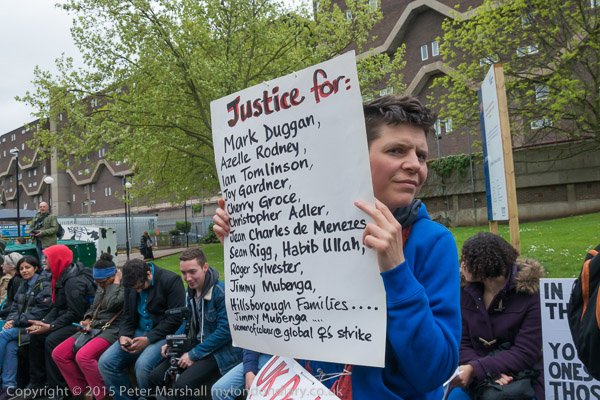 Justice for:
Mark Duggan,
Azelle Rodney,
Ian Tomlinson,
Joy Gardner,
Cherry Groce,
Christopher Adler,
Jean Charles de Menezes
Sean Rigg, Habib Ullah,
Roger Sylvester,
Jimmy Mubenga,
Hillsborough Families....
Jimmy Mubenga ...
womenofcolour@global ♀s strike
IN
TH
YO
ONES
THOS
Copyright © 2015 Peter Marshall mylondondiary.co.uk